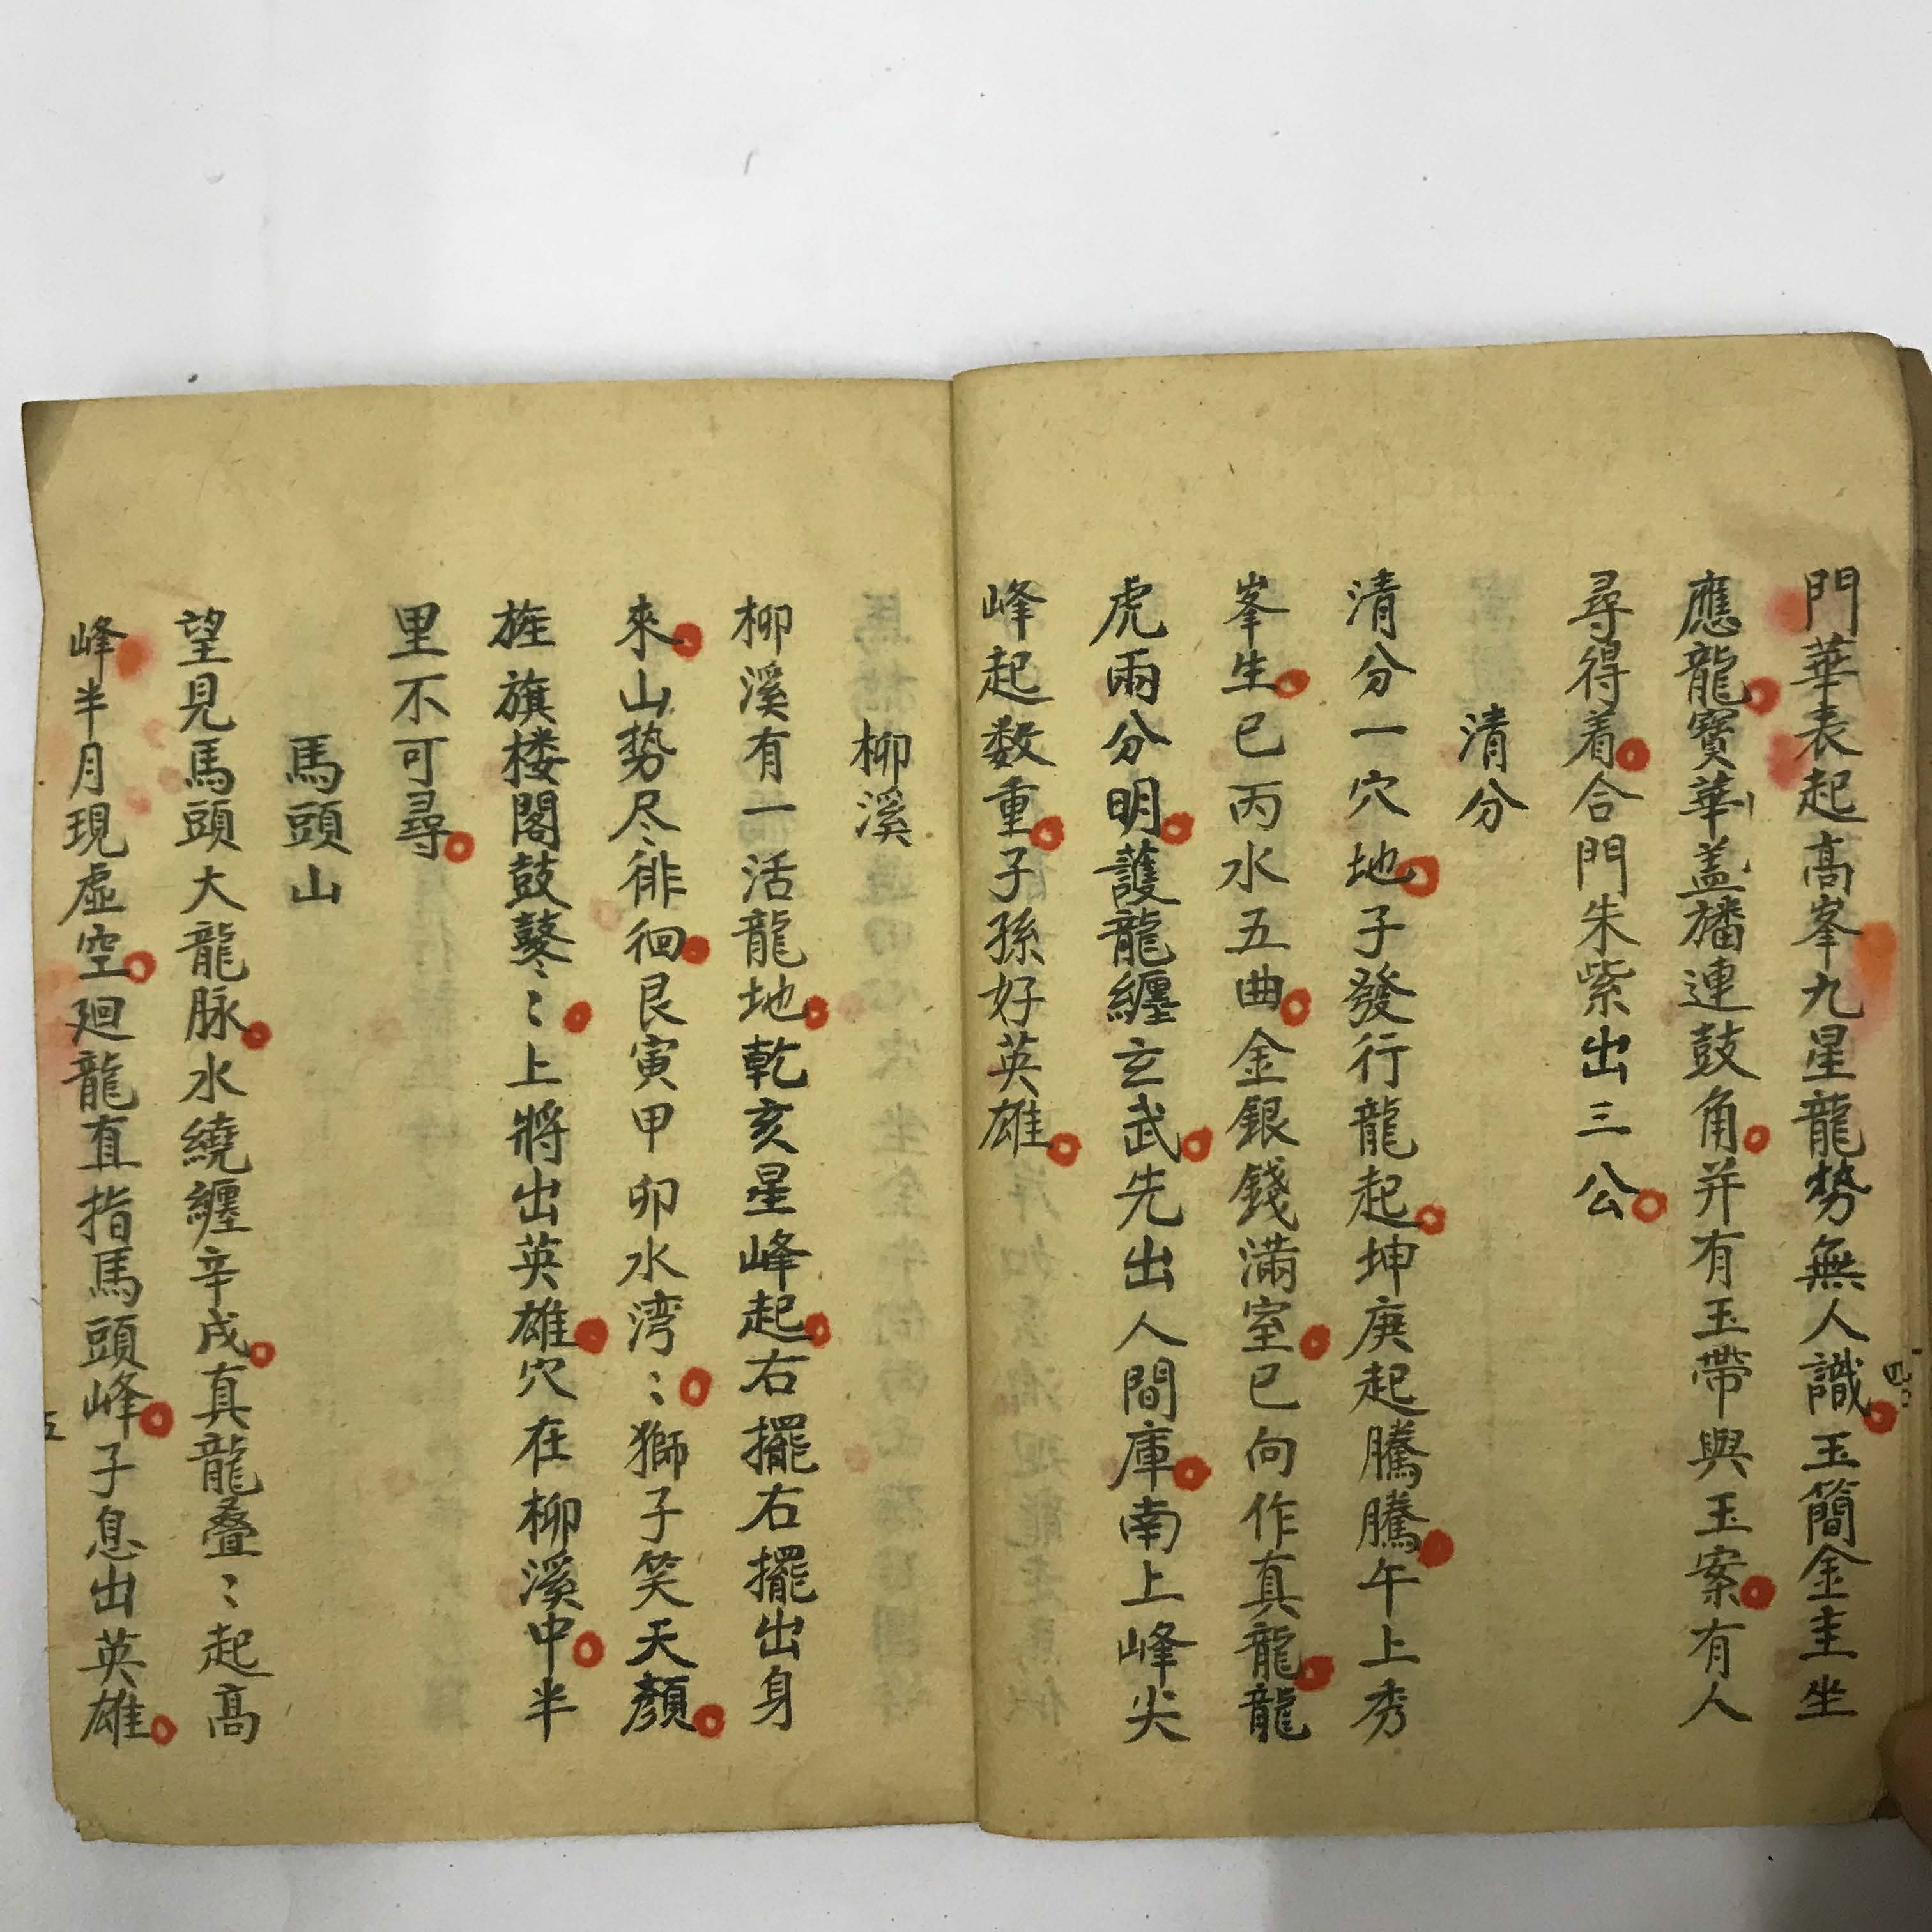 門華表起高峯九星龍勢無人識玉簡金圭坐
應龍寳華盖旛連鼓角并有玉帶與玉案有人
尋得着合門朱紫出三公
清分
清分一穴地子發行龍起坤庚起騰騰午上秀
峯生巳丙水五曲金銀錢滿室巳向作真龍龍
虎兩分明護龍纏玄武先出人間庫南上峰尖
峰起数重子孫好英雄
四
柳溪
柳溪有一活龍地乾亥星峰起右擺右擺出身
來山势尽徘徊艮寅甲卯水湾〻獅子笑天顏
旌旗楼閣鼓鼕〻上將出英雄穴在柳溪中半
里不可尋
馬頭山
望見馬頭大龍脉水繞纏辛戌真龍叠〻起高
峰半月現虛空廻龍直指馬頭峰子息出英雄
五